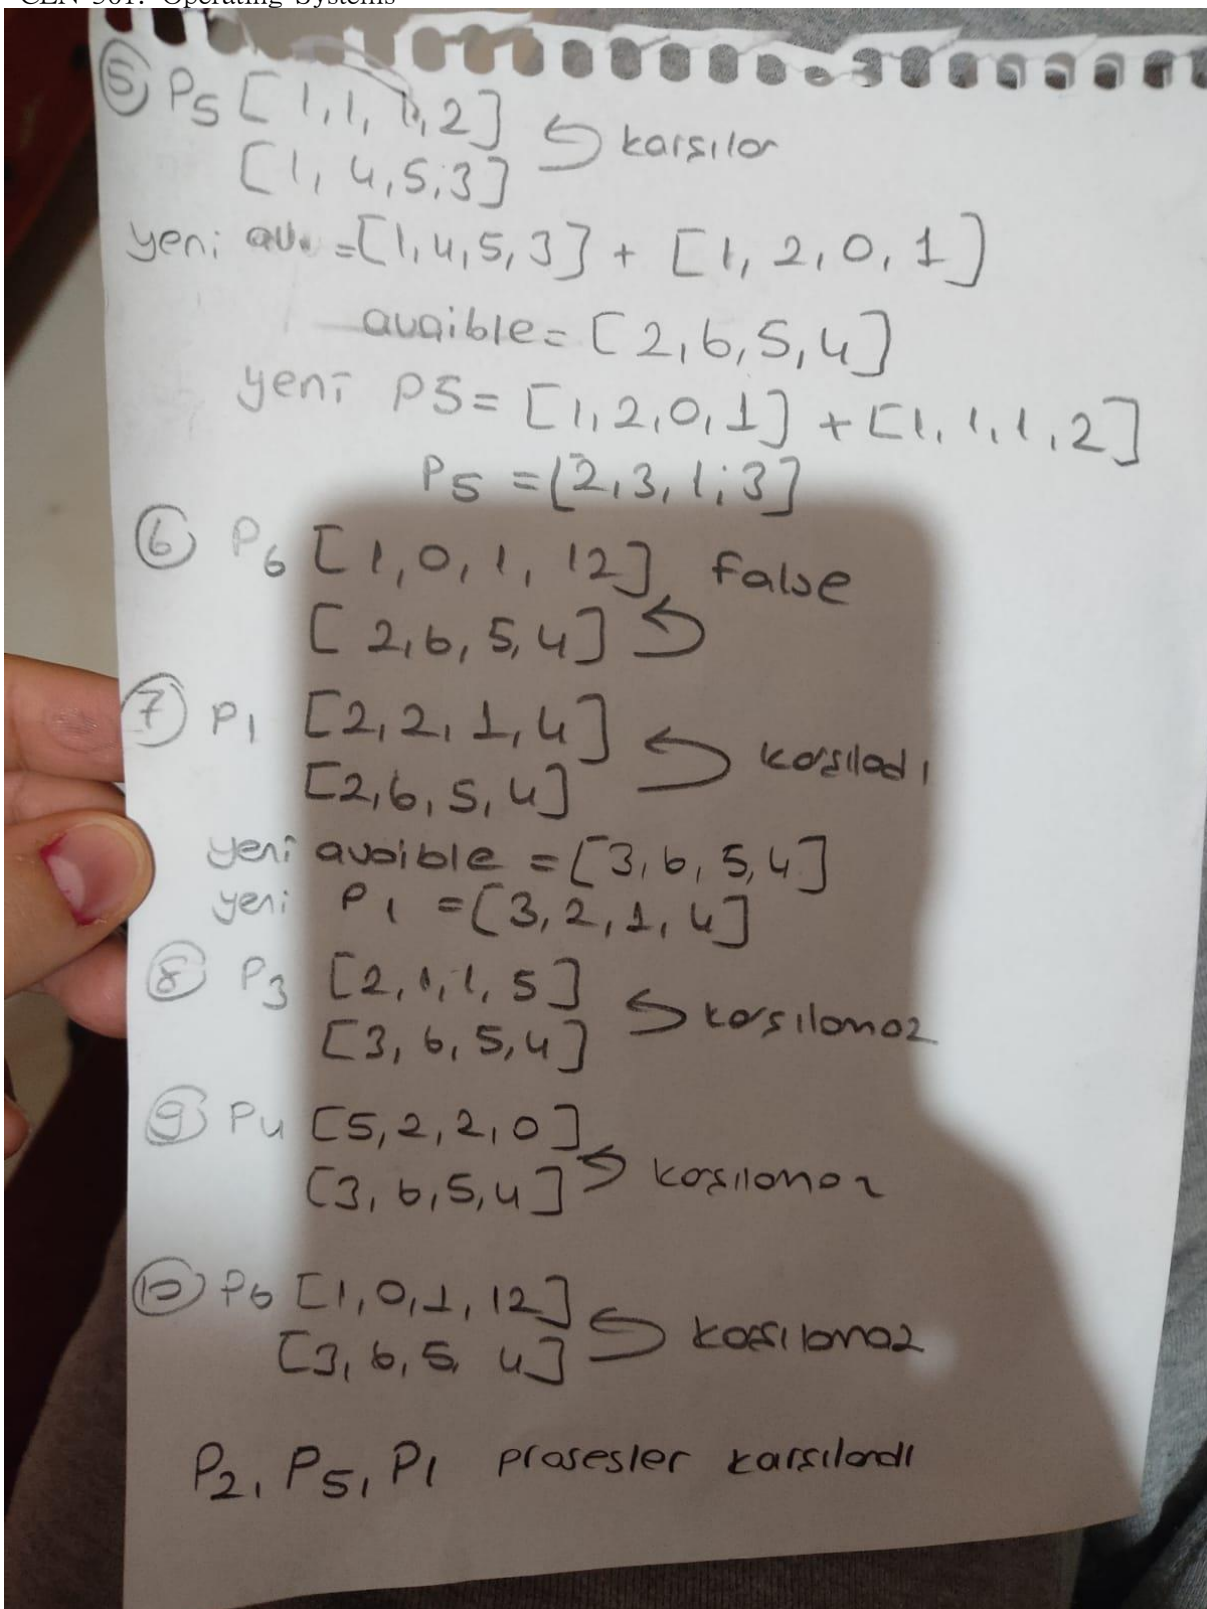 CEN 301: Operating Systems
5 P5 [1,1,1,2]
karşılar
[1,4,5,3]
yeni av. =[1,4,5,3] + [1,2,0,1]
avaible= [2,6,5,4]
yeni P5= [1,2,0,1] + [1,1,1,2]
P5 =[2,3,1,3]
6 P6 [1,0,1,12] false
[2,6,5,4]
7 P1 [2,2,1,4]
karşıladı
[2,6,5,4]
yeni avaible =[3,6,5,4]
yeni P1 =[3,2,1,4]
8 P3 [2,1,1,5]
karşılamaz
[3,6,5,4]
9 P4 [5,2,2,0]
karşılamaz
[3,6,5,4]
10 P6 [1,0,1,12]
karşılamaz
[3,6,5 4]
P2, P5, P1 prosesler karşılandı